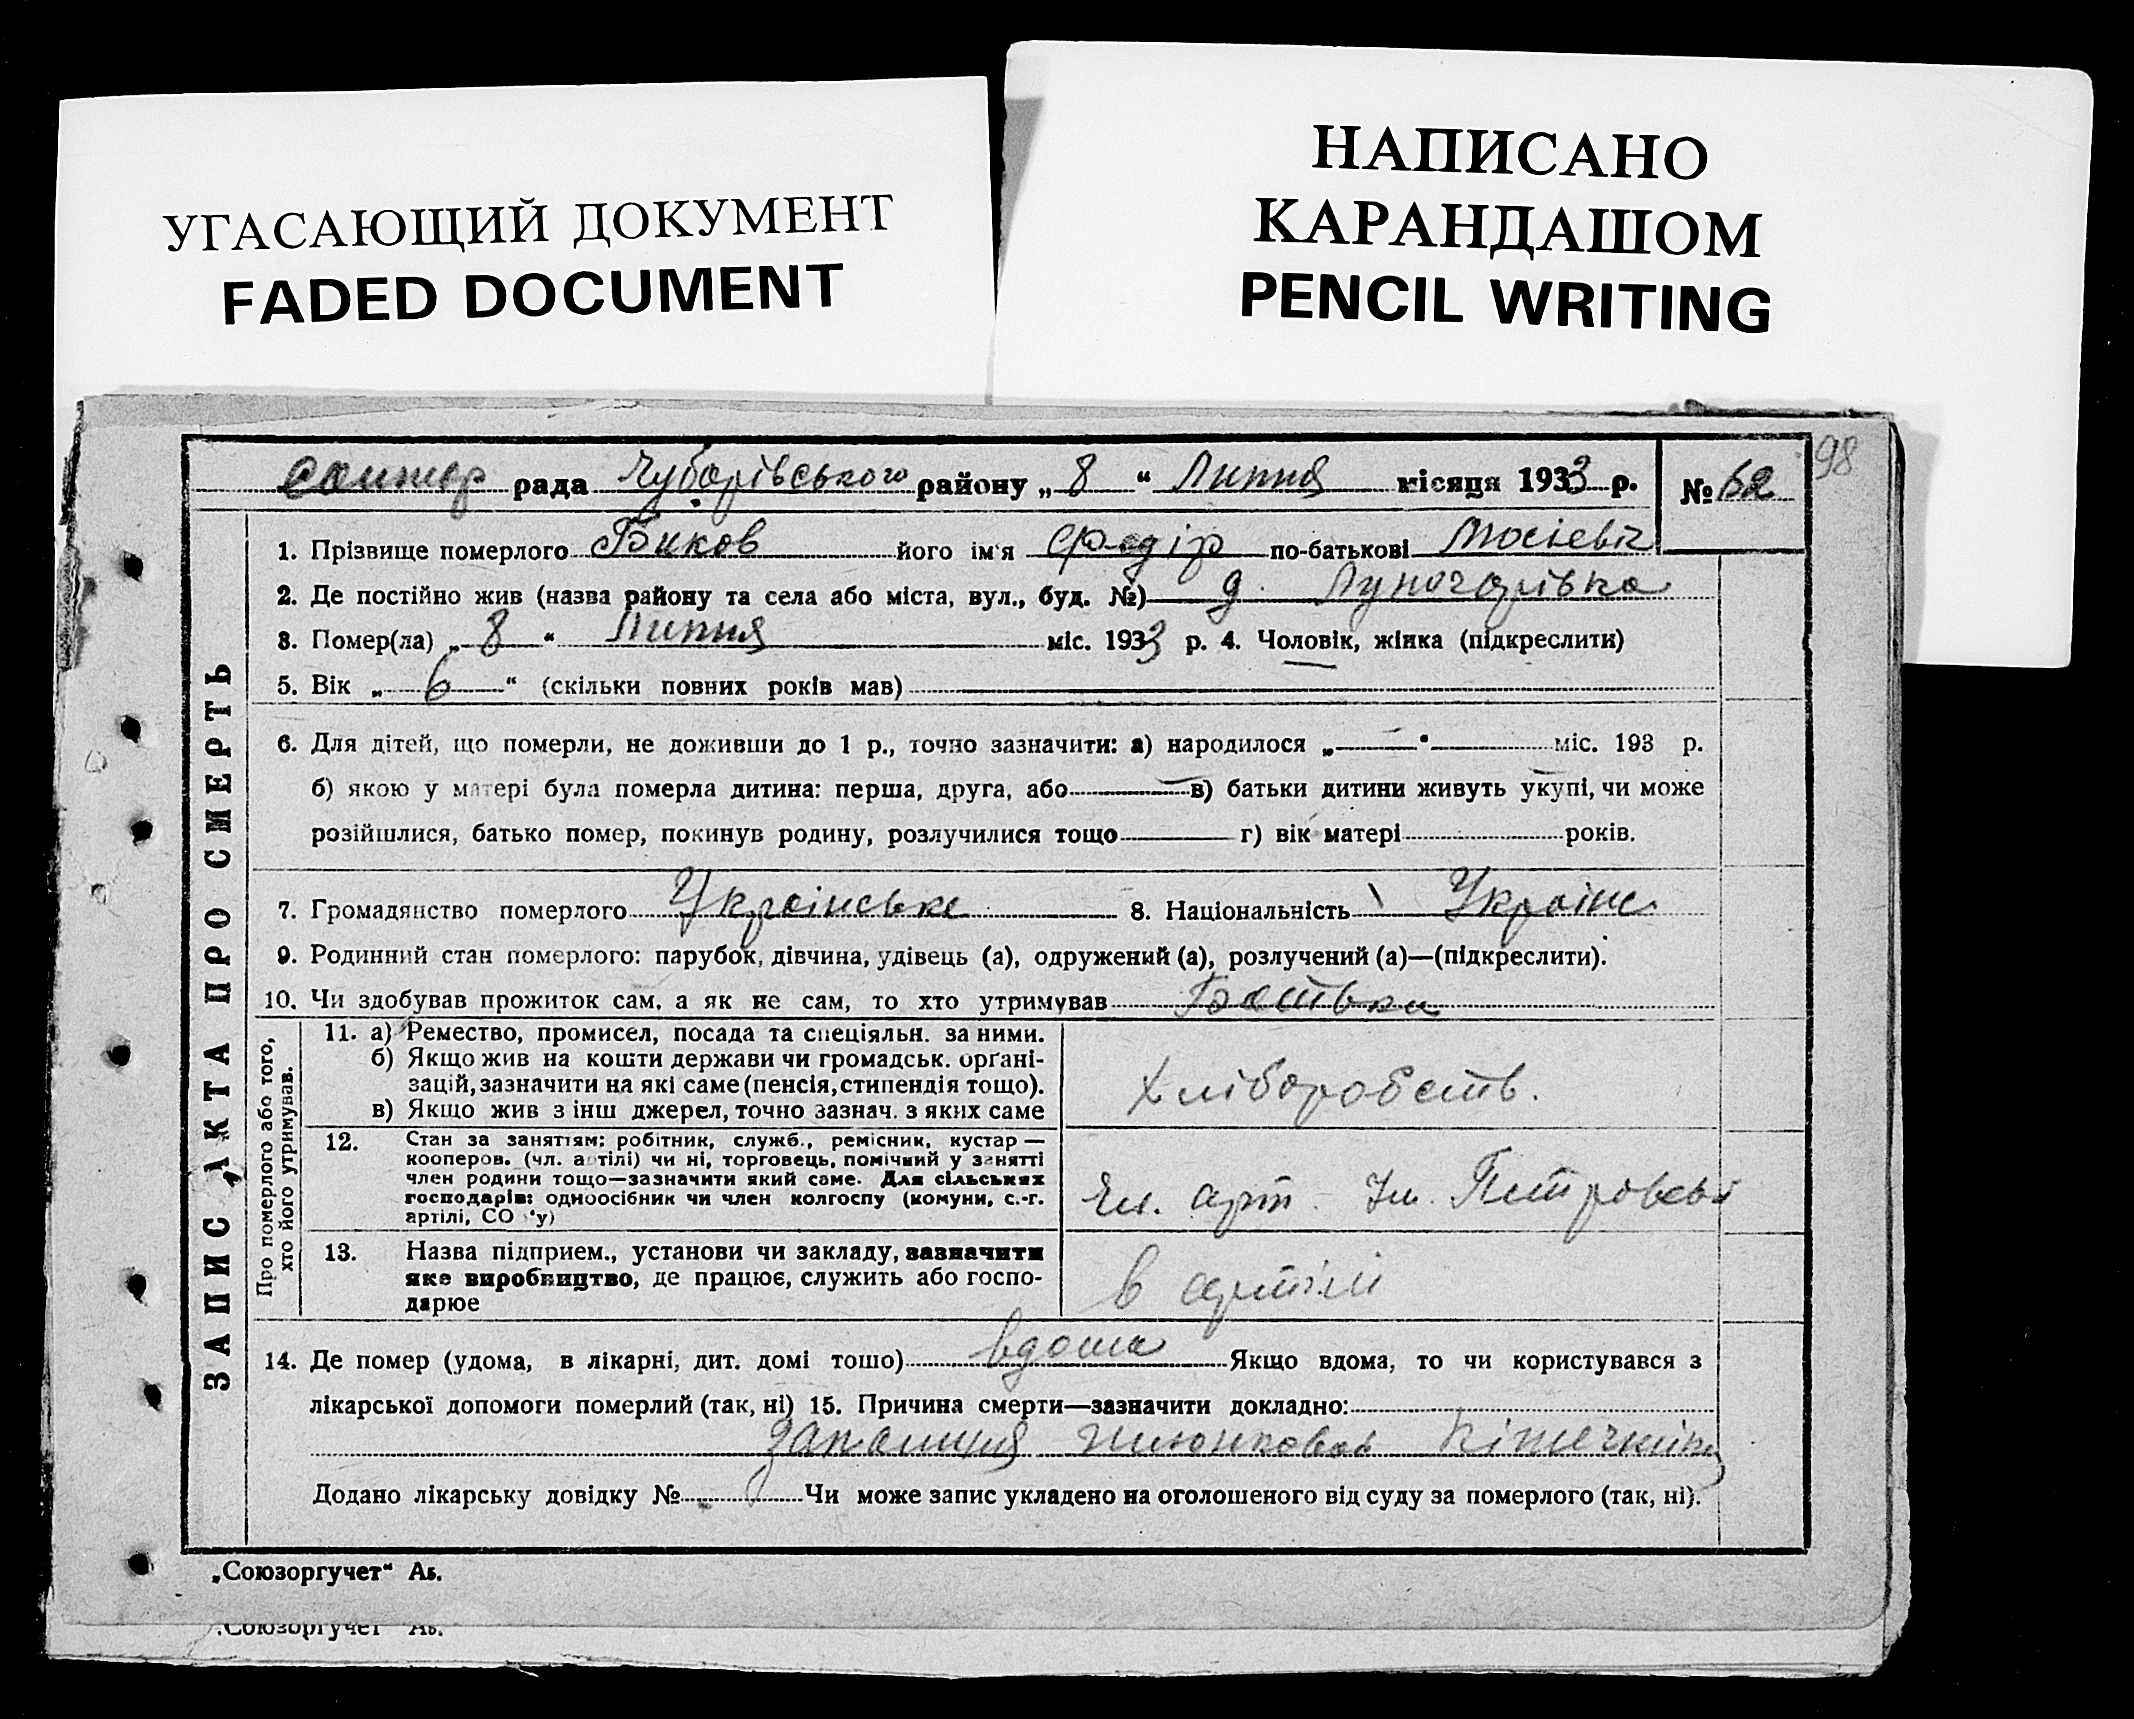 УГАСАЮЩИЙ ДОКУМЕНТ
FADED DOCUMENT
НАПИСАНО
КАРАНДАШОМ
PENCIL WRITING
98
рада Чубарівського району „ 8 “ Липня місяця 1933 р. № 62
ЗАПИС АКТА ПРО СМЕРТЬ
1. Прізвище померлого Биков його ім'я Федір по-батькові
2. Де постійно жив (назва району та села або міста, вул., буд. №)
3. Помер(ла) „ 8 “ Липня міс. 1933 р. 4. Чоловік, жінка (підкреслити)
5. Вік „ 6 “ (скільки повних років мав)
6. Для дітей, що померли, не доживши до 1 р., точно зазначити: а) народилося „ “ міс. 193 р.
б) якою у матері була померла дитина: перша, друга, або в) батьки дитини живуть укупі, чи може
розійшлися, батько помер, покинув родину, розлучилися тощо г) вік матері років.
7. Громадянство померлого Українське 8. Національність Україн
9. Родинний стан померлого: парубок, дівчина, удівець (а), одружений (а), розлучений (а)—(підкреслити).
10. Чи здобував прожиток сам, а як не сам, то хто утримував Батьки
Про померлого або того,
хто його утримував.
11. а) Ремество, промисел, посада та спеціяльн. за ними.
б) Якщо жив на кошти держави чи громадськ. органі-
зацій, зазначити на які саме (пенсія, стипендія тощо).
в) Якщо жив з інш джерел, точно зазнач. з яких саме
Хліборобств.
12. Стан за заняттям: робітник, служб., ремісник, кустар —
кооперов. (чл. артілі) чи ні, торговець, помічний у занятті
член родини тощо—зазначити який саме. Для сільських
господарів: одноосібник чи член колгоспу (комуни, с.-г.
артілі, СО у)
Чл. арт. Ім. Петровськ
13. Назва підприєм., установи чи закладу, зазначити
яке виробництво, де працює, служить або госпо-
дарює
в артілі
14. Де помер (удома, в лікарні, дит. домі тошо) вдома Якщо вдома, то чи користувався з
лікарської допомоги померлий (так, ні) 15. Причина смерти—зазначити докладно:
запалиння
Додано лікарську довідку № Чи може запис укладено на оголошеного від суду за померлого (так, ні).
„Союзоргучет“ Аб.
„Союзоргучет“ Аб.